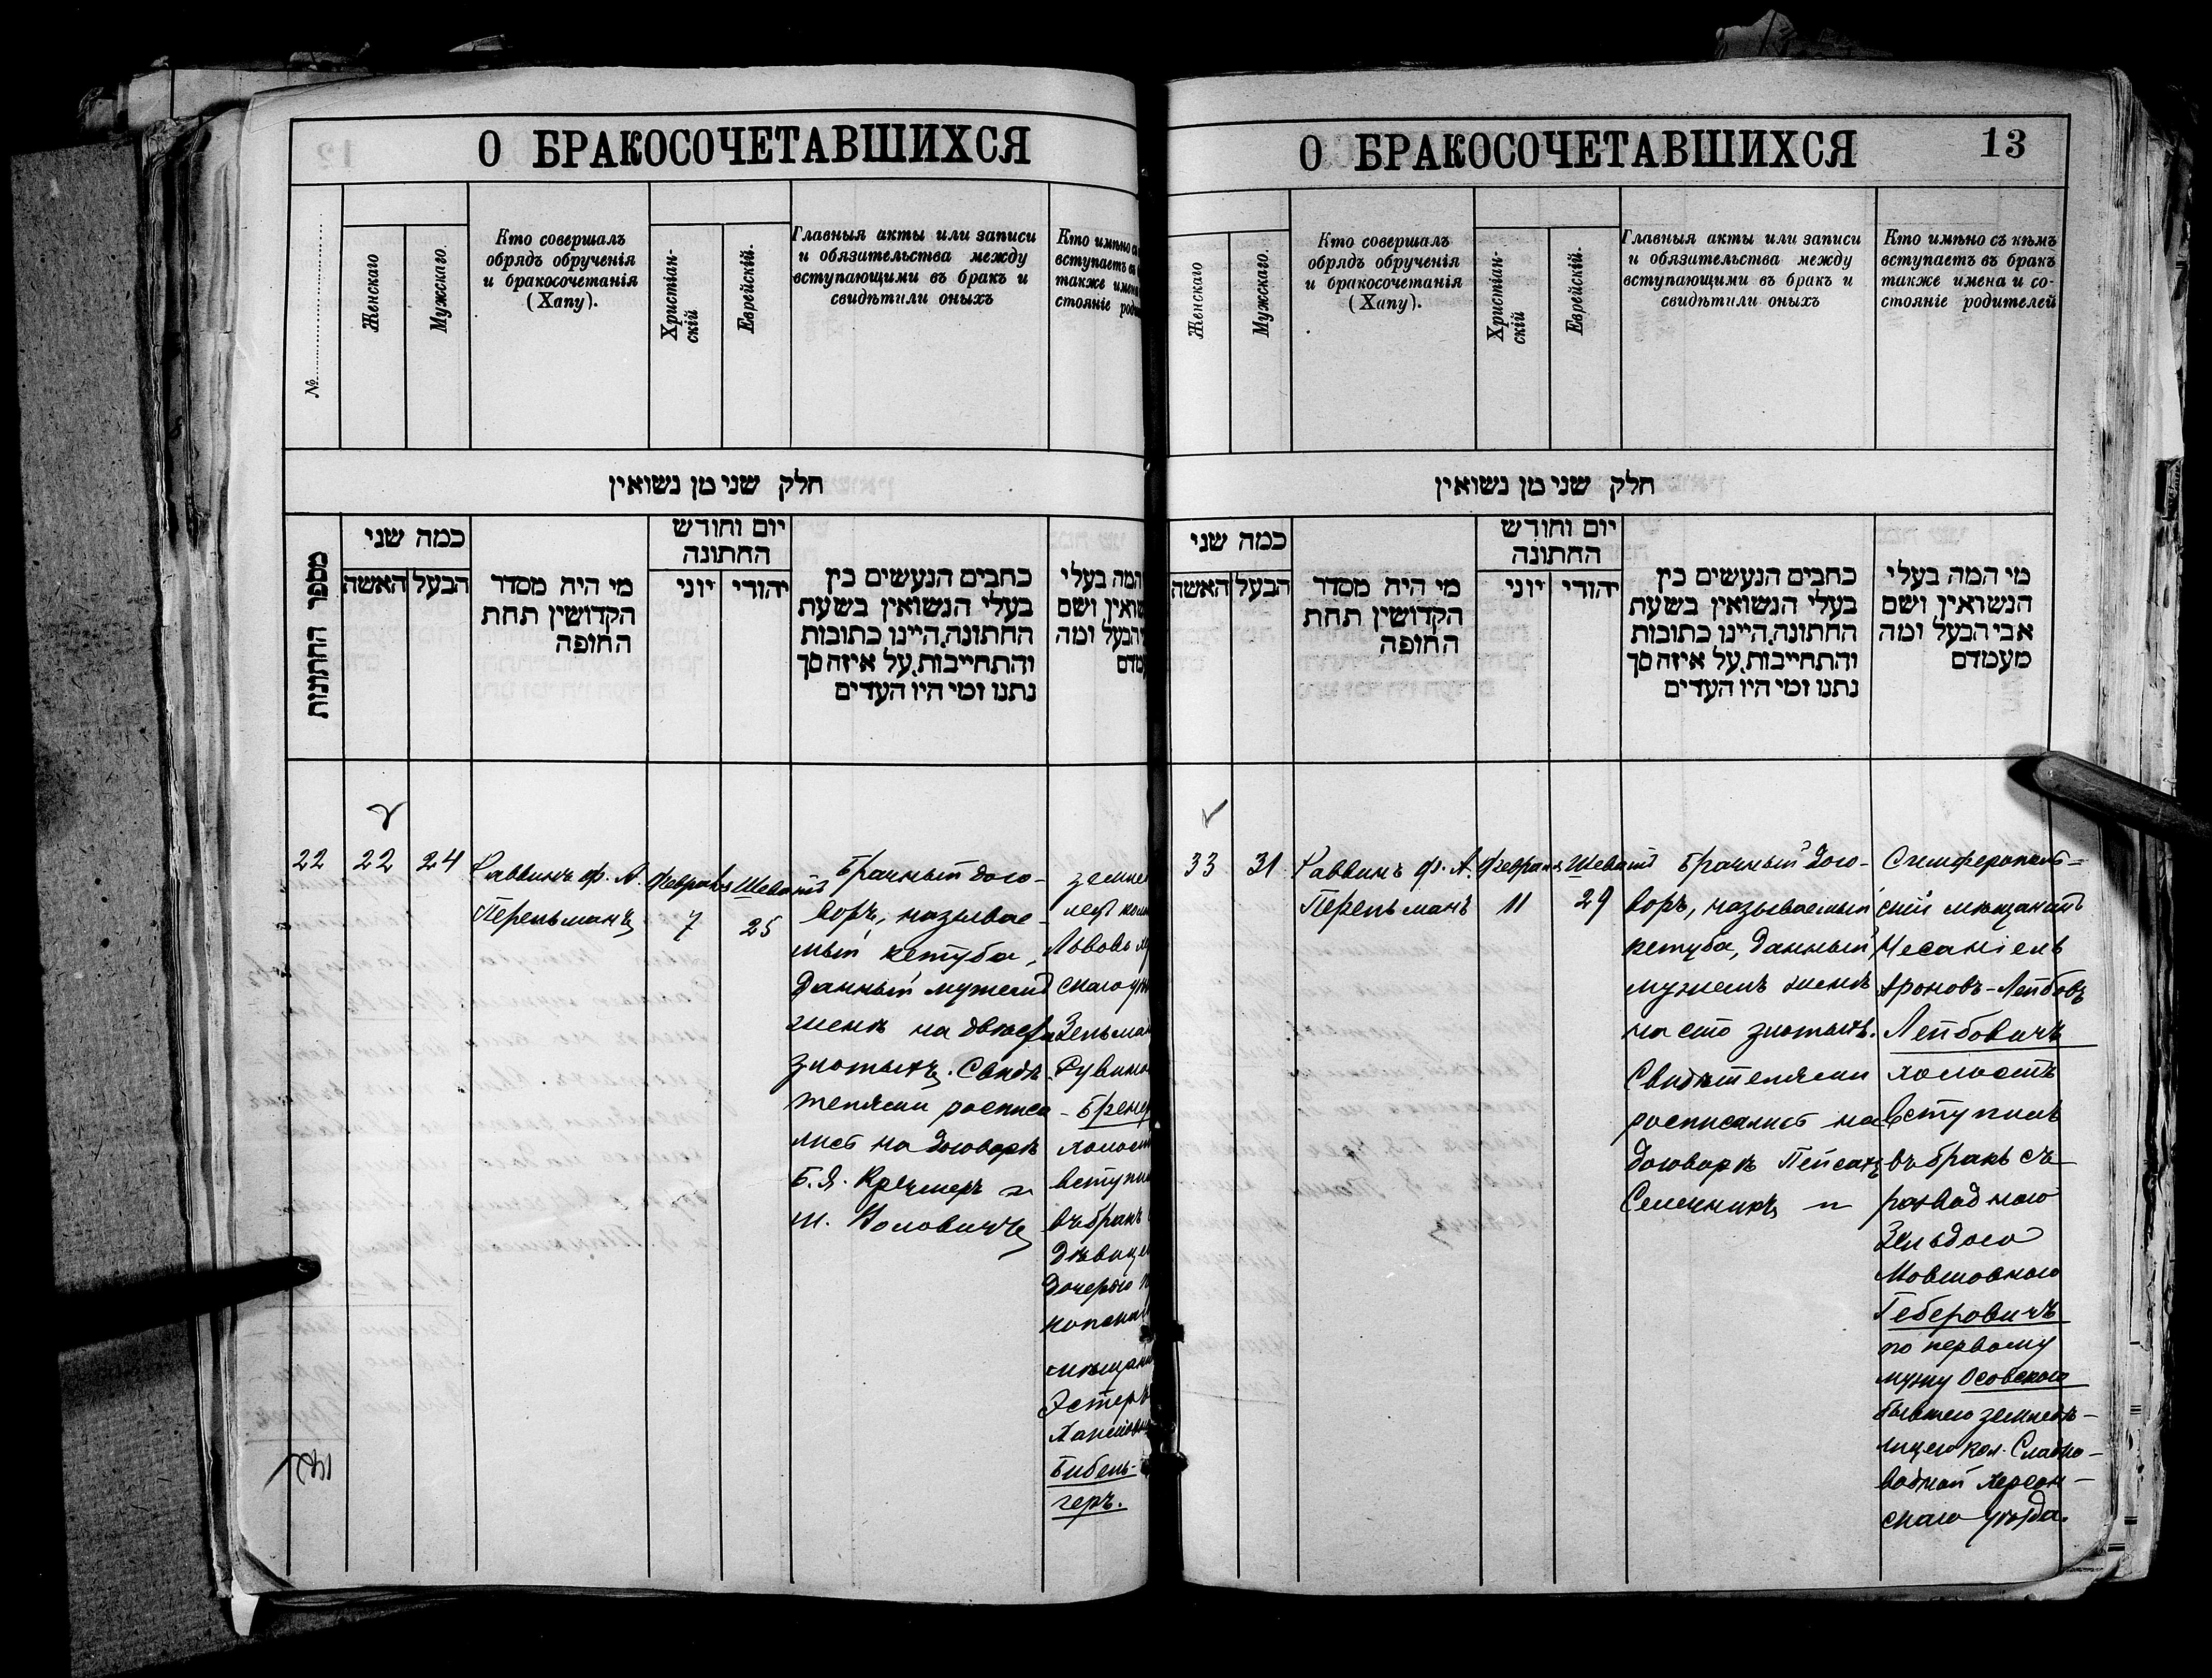 О БРАКОСОЧЕТАВШИХСЯ
№
Женскаго
Мужскаго.
Кто совершалъ
обрядъ обрученія
и бракосочетанія
(Хапу).
Христіан-
скій
Еврейскій.
Главныя акты или записи
и обязательства между
вступающими въ бракъ и
свидѣтили оныхъ
Кто имѣно
вступаетъ
также
стояніе
חלק שני מן נשואין
מספר החתונות
כמה שני
האשה
הבעל
מי היה מסדר
הקדושין תחת
החופה
יום וחודש
החתונה
יוני
יהודי
כתבים הנעשים בין
בעלי הנשואין בשעת
החתונה, היינו כתובות
והתחייבות, על איזה סך
נתנו ומי היו העדים
המה בעלי
ושם
הבעל ומה
22
22
24
Раввинъ Ф. А.
Перельманъ
Февраля
7
Шеватъ
25
Брачный дого-
воръ, называе-
мый кетуба,
данный мужемъ
женѣ на двѣсти
злотыхъ. Свидѣ-
телями росписа-
лись на договорѣ
Б. Я. Кречмеръ и
Львовъ
скаго
Зельман
Рувимов
вступил
въ бракъ
дѣвицею
дочерью
Эстеръ
Бибель-
геръ.
О БРАКОСОЧЕТАВШИХСЯ
13
Женскаго
Мужскаго.
Кто совершалъ
обрядъ обрученія
и бракосочетанія
(Хапу).
Христіан-
скій
Еврейскій.
Главныя акты или записи
и обязательства между
вступающими въ бракъ и
свидѣтили оныхъ
Кто имѣно съ кѣмъ
вступаетъ въ бракъ
также имена и со-
стояніе родителей
חלק שני מן נשואין
כמה שני
האשה
הבעל
מי היה מסדר
הקדושין תחת
החופה
יום וחודש
החתונה
יוני
יהודי
כתבים הנעשים בין
בעלי הנשואין בשעת
החתונה, היינו כתובות
והתחייבות, על איזה סך
נתנו ומי היו העדים
מי המה בעלי
הנשואין ושם
אבי הבעל ומה
מעמדם
33
31
Раввинъ Ф. А.
Перельманъ
Февраля
11
Шеватъ
29
Брачный дого-
воръ, называемый
кетуба, данный
мужемъ женѣ
на сто злотыхъ.
Свидѣтелями
росписались на
договорѣ Пейсахъ
и
Симферополь-
скій мѣщанинъ
Ароновъ-Лейбовъ
Лейбовичъ
холостъ
вступилъ
въ бракъ съ
разводною
Зельдою
Мовшовною
Геберовичъ
по первому
мужу Осовскою
бывшею земледѣ-
лицею кол. Сладко-
водной Херсон-
скаго уѣзда.